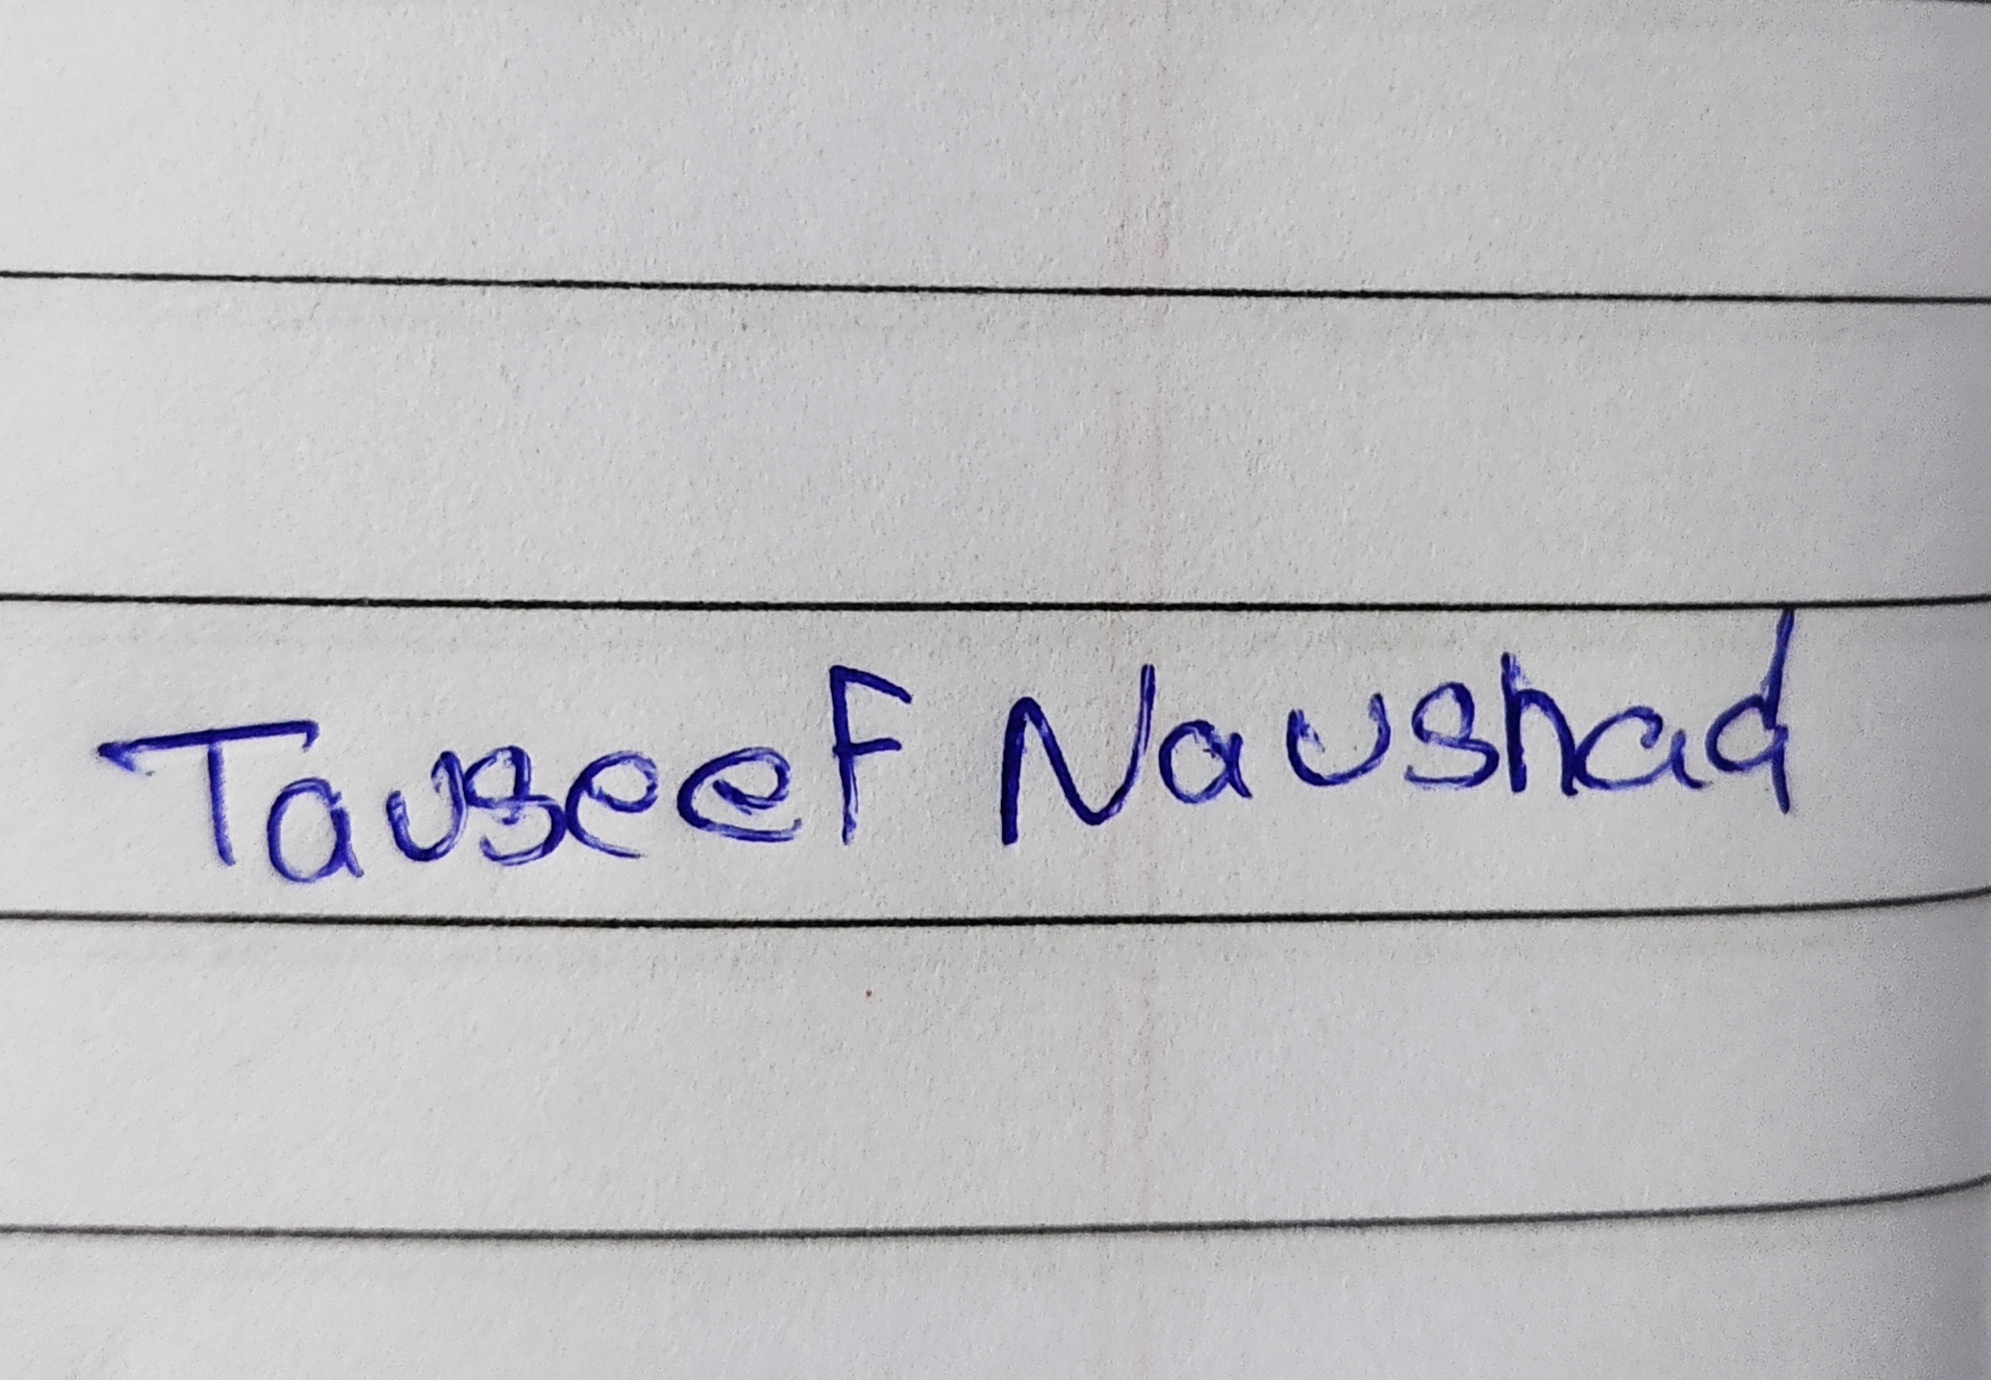 Tauseef Naushad